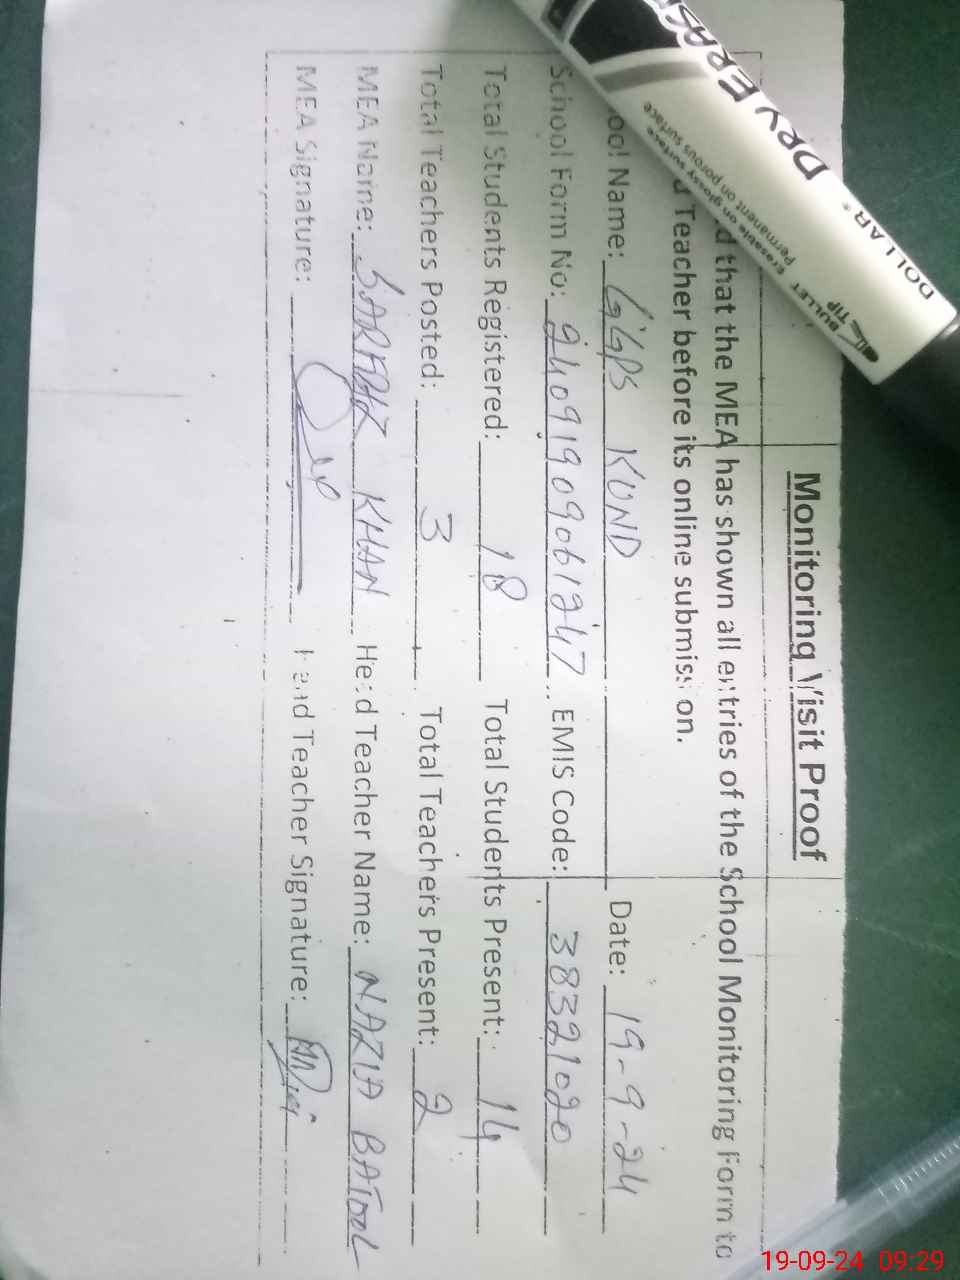 Monitoring Visit Proof
that the MEA has shown all entries of the School Monitoring Form to
Teacher before its online submission.
Name: GGPS KUND Date: 19-9-24
School Form No: 24091909061247 EMIS Code: 38321020
Total Students Registered: 18 Total Students Present: 14
Total Teachers Posted: 3 Total Teachers Present: 2
MEA Name: KHAN Head Teacher Name: NAZIA BATOOL
MEA Signature: Head Teacher Signature:
DRY ERAS
Erasable on glossy surface
Permanent on porous surface
DOLLAR®
BULLET TIP
19-09-24 09:29